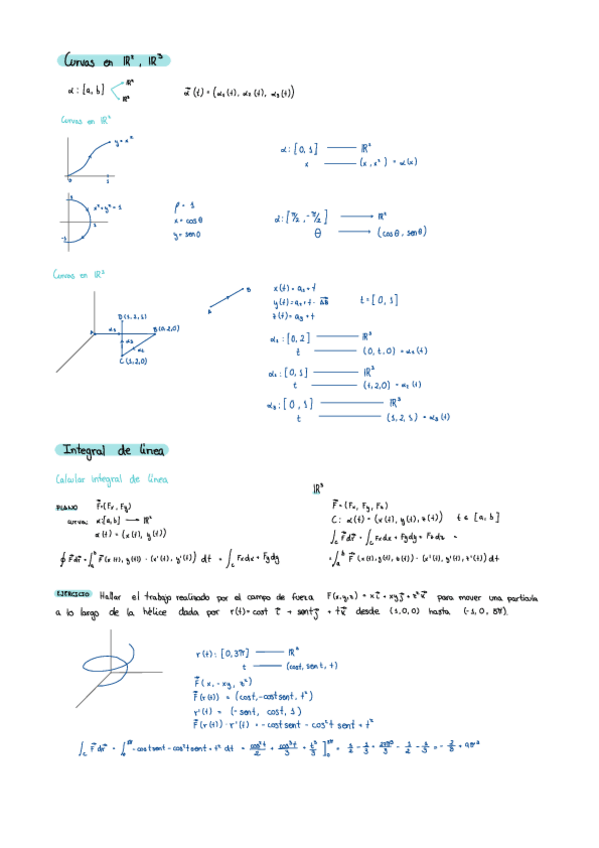 Curvas en IR², IR³
α : [a, b] IR² IR³
α⃗(t) = (α₁(t), α₂(t), α₃(t))
Curvas en IR²
y = x²
α : [0, 1] IR²
x (x, x²) = α(x)
x² + y² = 1
ρ = 1
x = cosθ
y = senθ
α : [π/2, -π/2] IR²
θ (cosθ, senθ)
Curvas en IR³
A B
x(t) = a₁ + t
y(t) = a₂ + t · AB
z(t) = a₃ + t
t = [0, 1]
D(1, 2, 1)
B(0,2,0)
C(1,2,0)
α₁ : [0, 2] IR³
t (0, t, 0) = α₁(t)
[0, 1] IR³
t (t, 2, 0) = α₂(t)
α₃ : [0, 1] IR³
t (1, 2, t) = α₃(t)
Integral de línea
Calcular integral de línea
IR³
PLANO F⃗ = (Fx, Fy)
curva: α:[a, b] IR²
α(t) = (x(t), y(t))
∮ F⃗dr⃗ = ∫ₐᵇ F⃗(x(t), y(t)) · (x'(t), y'(t)) dt = ∫c Fxdx + Fydy
F⃗ = (Fx, Fy, Fz)
C: α(t) = (x(t), y(t), z(t)) t ∈ [a, b]
∫c F⃗dr⃗ = ∫c Fxdx + Fydy + Fzdz =
= ∫ₐᵇ F⃗(x(t), y(t), z(t)) · (x'(t), y'(t), z'(t)) dt
EJERCICIO Hallar el trabajo realizado por el campo de fuerza F(x,y,z) = xi + xyj + z²k para mover una partícula
a lo largo de la hélice dada por r(t) = cost i + sent j + tk desde (1,0,0) hasta (-1, 0, 3π).
r(t) : [0, 3π] IR³
t (cost, sent, t)
F⃗(x, -xy, z²)
F⃗(r(t)) = (cost, -cost sent, t²)
r'(t) = (-sent, cost, 1)
F⃗(r(t)) · r'(t) = -cost sent - cos²t sent + t²
∫c F⃗dr⃗ = ∫₀³π -cost sent - cos²t sent + t² dt = cos²t/2 + cos³t/3 + t³/3 ]₀³π